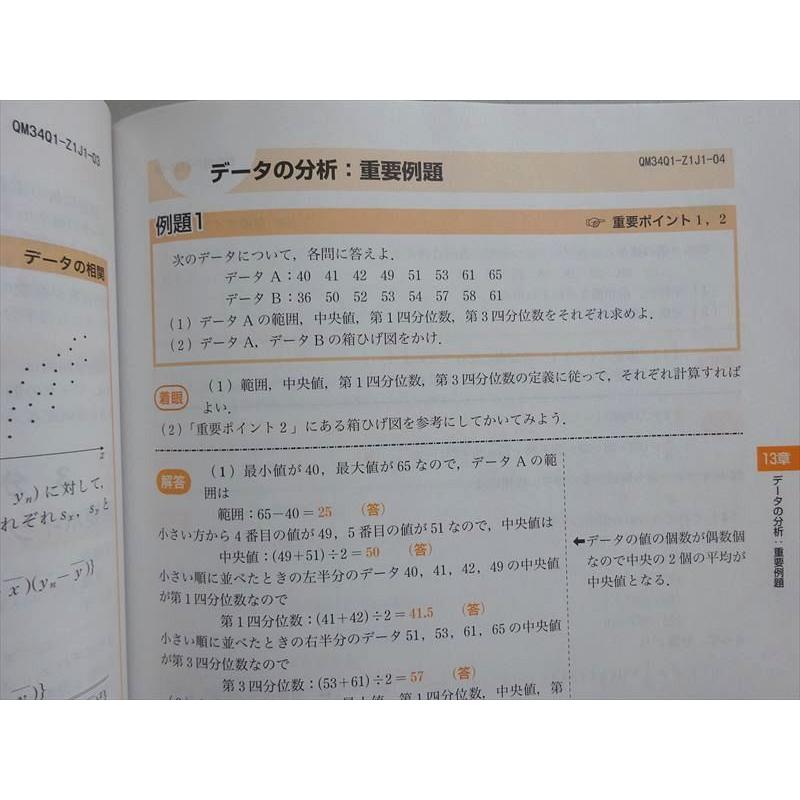 QM34Q1-Z1J1-03
データの相関
x
yₙ) に対して,
れぞれ sₓ, sᵧ と
x)(yₙ−y)}
データの分析：重要例題
QM34Q1-Z1J1-04
例題1
☞ 重要ポイント 1, 2
次のデータについて, 各問に答えよ.
データ A：40 41 42 49 51 53 61 65
データ B：36 50 52 53 54 57 58 61
(1) データ A の範囲, 中央値, 第1四分位数, 第3四分位数をそれぞれ求めよ.
(2) データ A, データ B の箱ひげ図をかけ.
着眼
(1) 範囲, 中央値, 第1四分位数, 第3四分位数の定義に従って, それぞれ計算すれば
よい.
(2)「重要ポイント2」にある箱ひげ図を参考にしてかいてみよう.
解答
(1) 最小値が 40, 最大値が 65 なので, データ A の範
囲は
範囲：65−40＝25 (答)
小さい方から 4 番目の値が 49, 5 番目の値が 51 なので, 中央値は
中央値：(49+51)÷2＝50 (答)
小さい順に並べたときの左半分のデータ 40, 41, 42, 49 の中央値
が第1四分位数なので
第1四分位数：(41+42)÷2＝41.5 (答)
小さい順に並べたときの右半分のデータ 51, 53, 61, 65 の中央値
が第3四分位数なので
第3四分位数：(53+61)÷2＝57 (答)
第1四分位数, 中央値, 第
←データの値の個数が偶数個
なので中央の2個の平均が
中央値となる.
13章
データの分析：重要例題